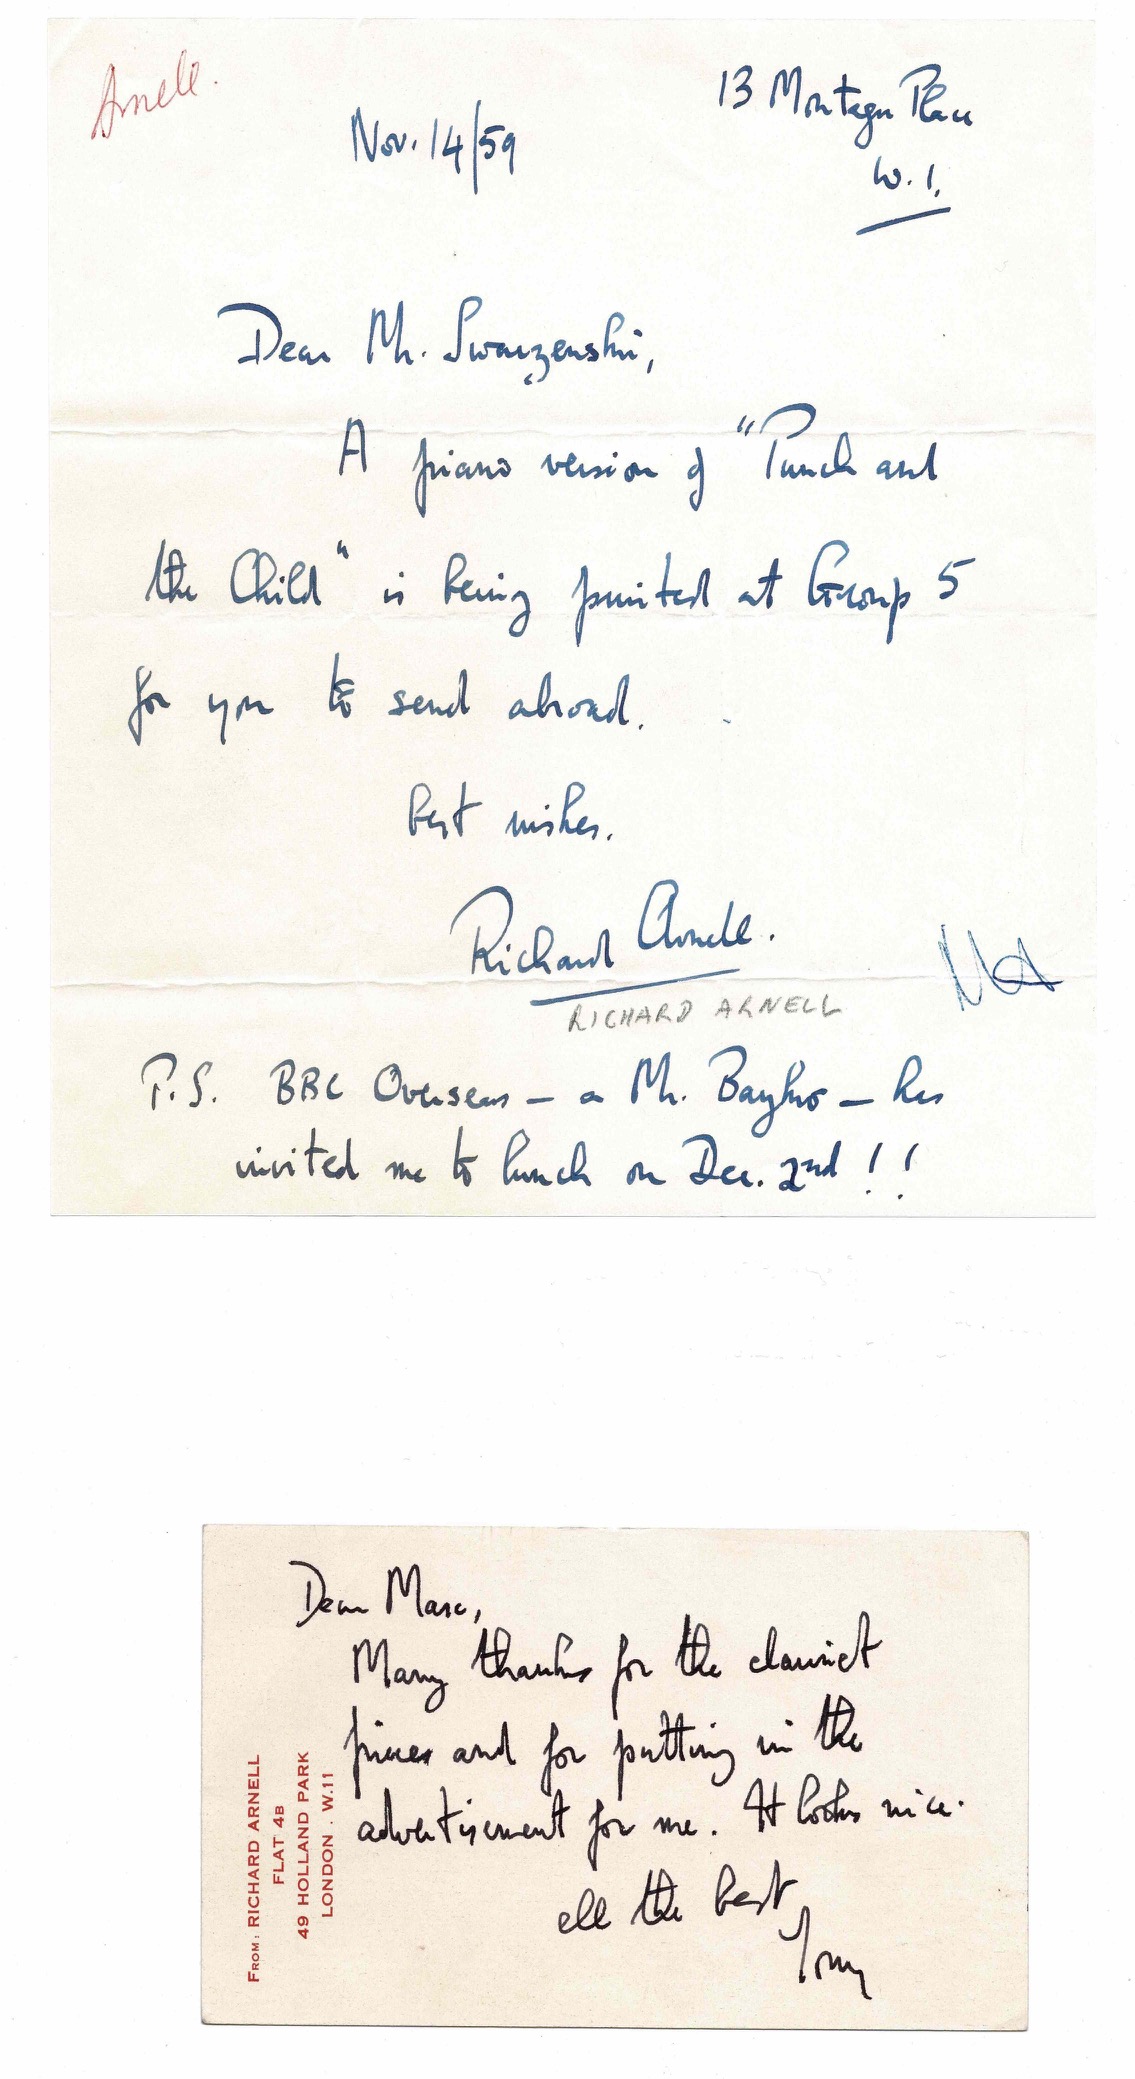 Arnell.
13 Montagu Place
Nov. 14/59
W. 1.
Dear Mr. Swarzenski,
A piano version of "Punch and
the Child" is being printed at Group 5
for you to send abroad.
best wishes.
Richard Arnell.
RICHARD ARNELL
P.S. BBC Overseas – a Mr. – has
invited me to lunch on Dec. 2nd!!
Dear Marc,
Many thanks for the clarinet
pieces and for putting in the
advertisement for me. It looks nice.
all the best
Tony
FROM: RICHARD ARNELL
FLAT 4B
49 HOLLAND PARK
LONDON . W.11